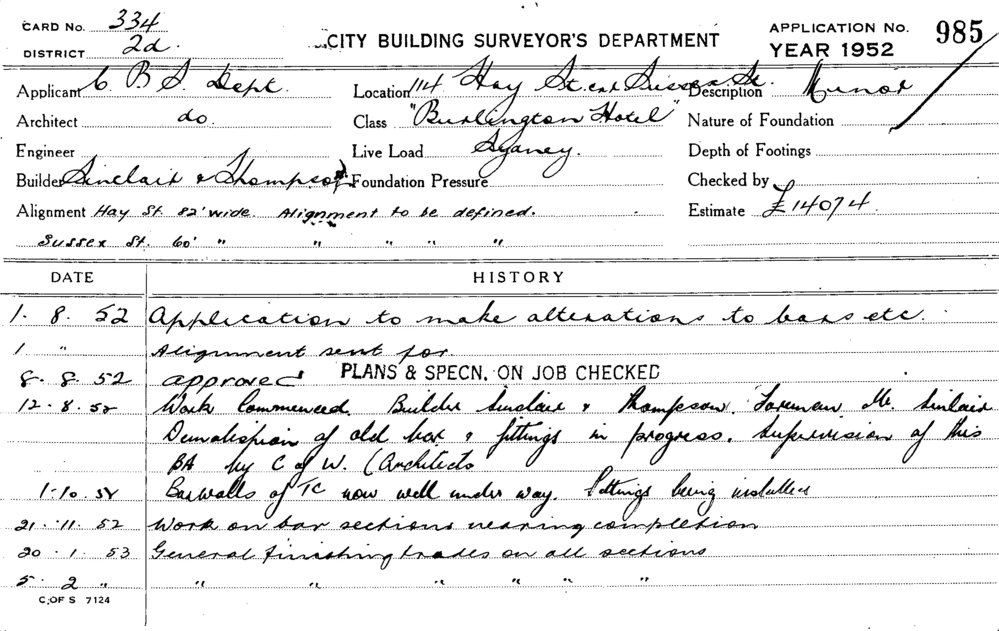 CARD No. 334
DISTRICT 2d.
CITY BUILDING SURVEYOR'S DEPARTMENT
APPLICATION No. 985
YEAR 1952
Applicant C. B. S. Dept.
Location 114 Hay St. cnr Sussex St.
Description Minor
Architect do.
Class "Burlington Hotel"
Nature of Foundation
Engineer
Live Load Sydney.
Depth of Footings
Builder Sinclair & Thompson
Foundation Pressure
Checked by
Alignment Hay St. 82' wide. Alignment to be defined.
Estimate £14074
Sussex St. 60' " " " " "
DATE HISTORY
1. 8. 52 Application to make alterations to bars etc.
1 " Alignment sent for.
8. 8. 52 approved PLANS & SPECN. ON JOB CHECKED
12. 8. 52 Work Commenced. Builder Sinclair & Thompson. Foreman Mr. Sinclair
Demolition of old bar & fittings in progress. Supervision of this
BA by C of W. (Architects
1. 10. 52 Barwalls of TC now well under way. Fittings being installed
21. 11. 52 Work on bar sections nearing completion
20. 1. 53 General finishing trades on all sections
5. 2 " " " " " " "
C. OF S 7124